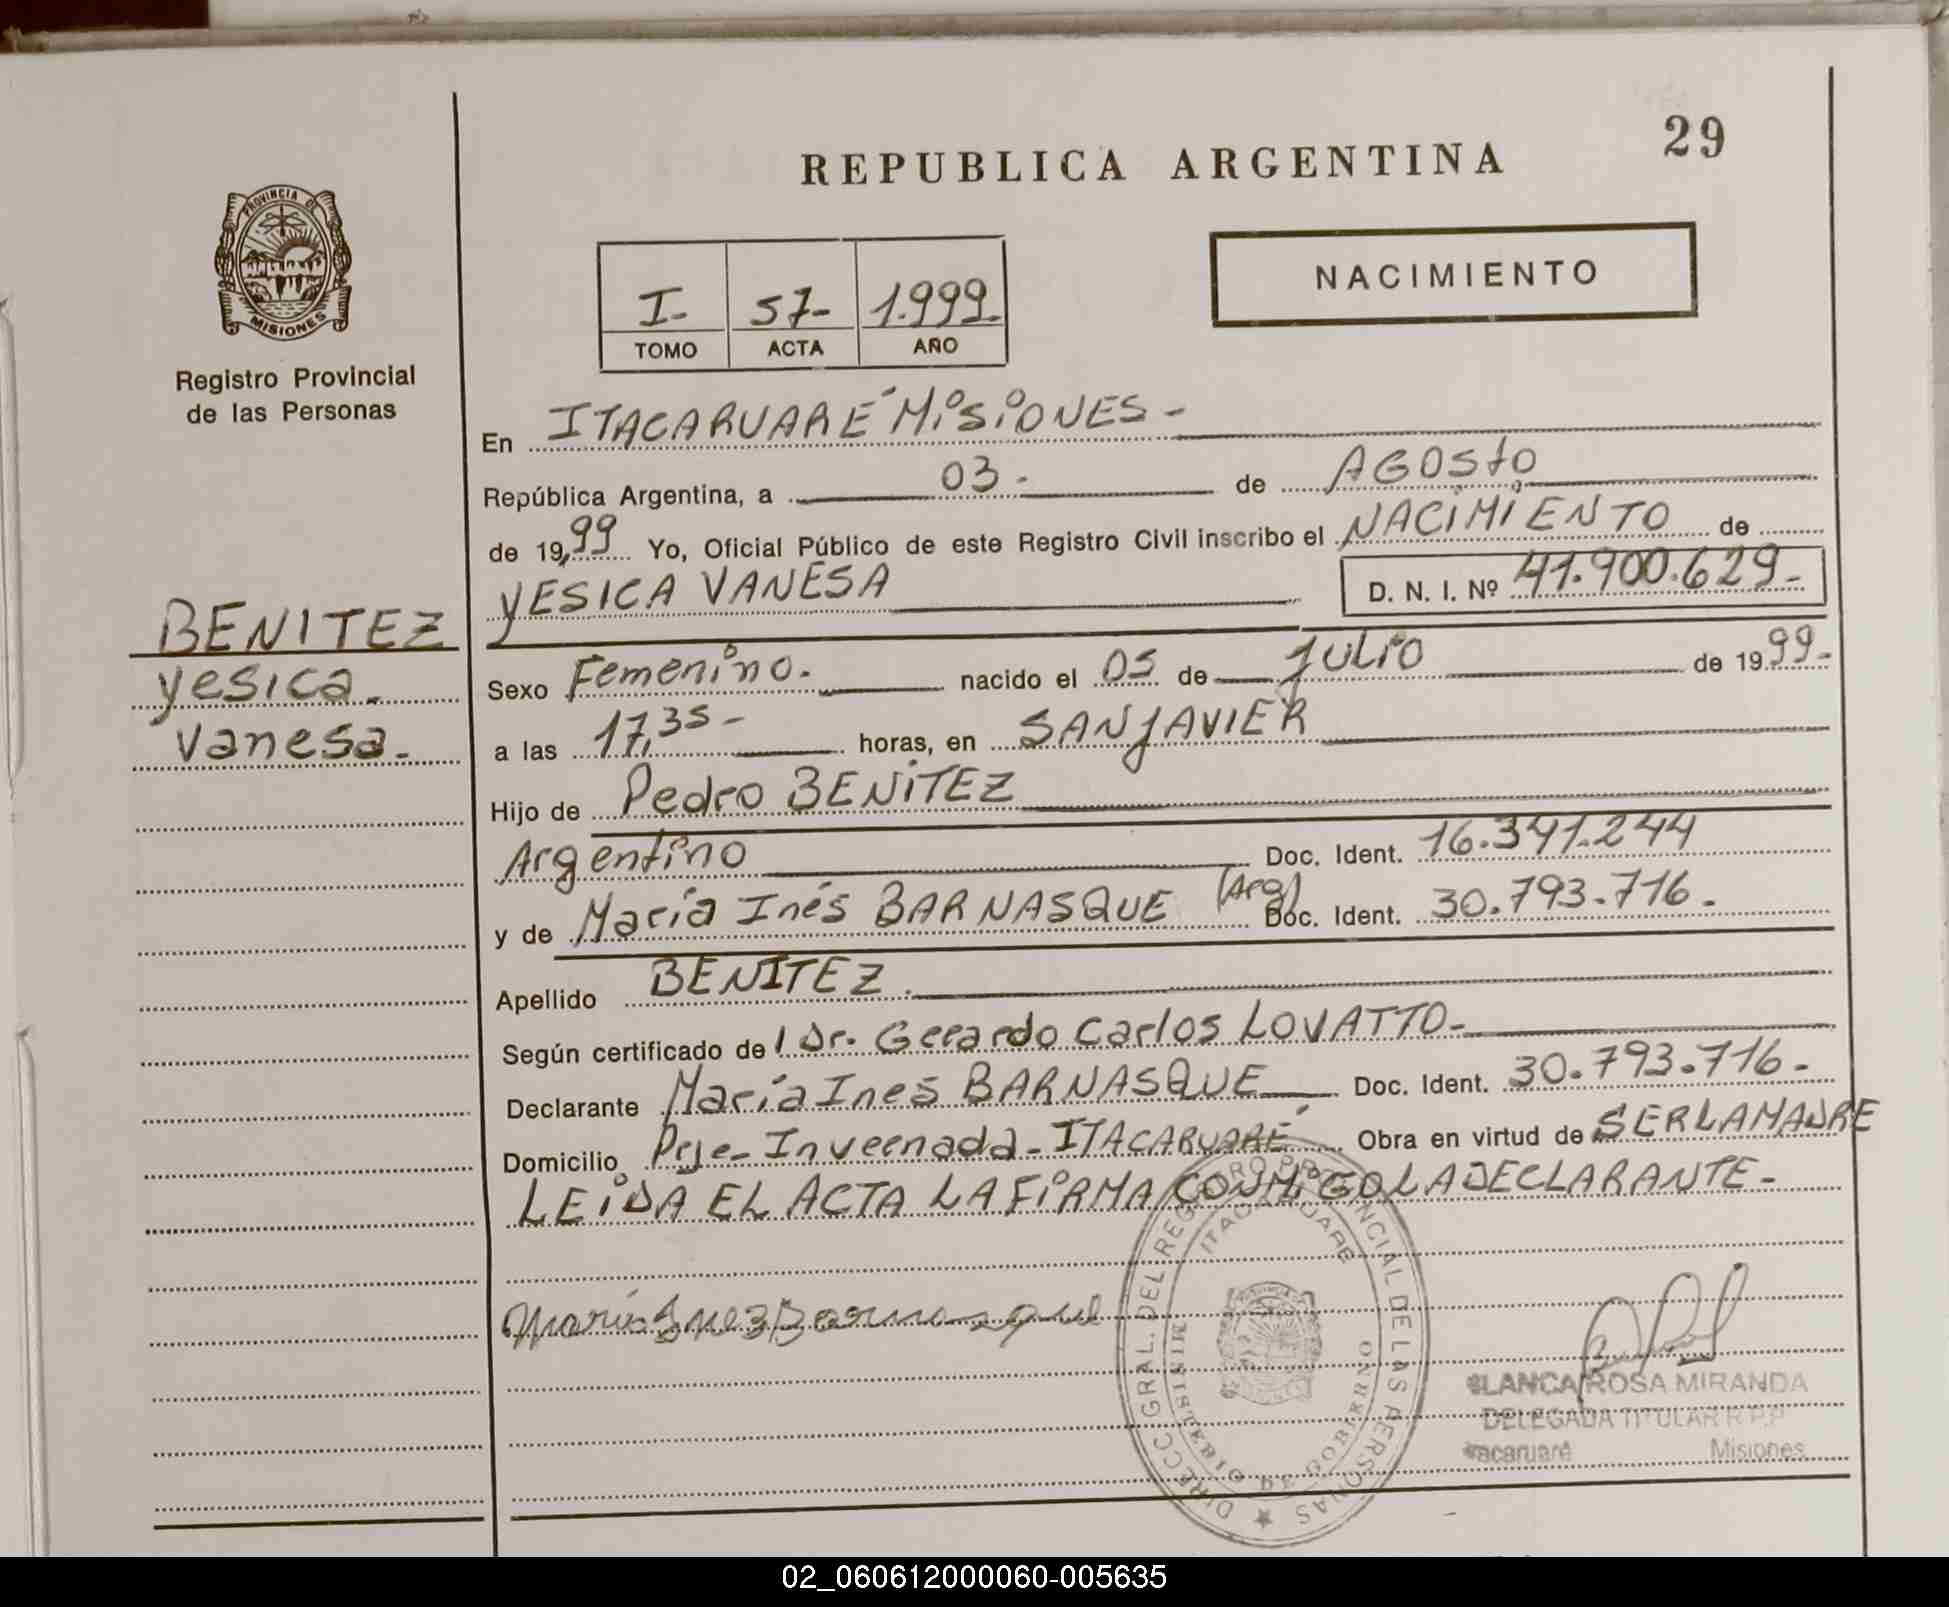 29
REPUBLICA ARGENTINA
PROVINCIA DE
MISIONES
Registro Provincial
de las Personas
NACIMIENTO
I- 57- 1.999-
TOMO ACTA AÑO
En ITACARUARÉ MISIONES -
República Argentina, a 03 - de AGOSTO
de 19,99 Yo, Oficial Público de este Registro Civil inscribo el NACIMIENTO de
YESICA VANESA D. N. I. Nº 41.900.629-
BENITEZ
yesica
vanesa.
Sexo Femenino. nacido el 05 de JULIO de 19 99-
a las 17,35 - horas, en SAN JAVIER
Hijo de Pedro BENITEZ
Argentino Doc. Ident. 16.341.244
y de María Inés BARNASQUE (Arg) Doc. Ident. 30.793.716.
Apellido BENITEZ.
Según certificado de l Dr. Gerardo Carlos LOVATTO-
Declarante María Ines BARNASQUE Doc. Ident. 30.793.716-
Domicilio Pje- Invernada- ITACARUARÉ Obra en virtud de SER LA MADRE
LEIDA EL ACTA LA FIRMA CONMIGO LA DECLARANTE-
María Inez Barnasque
DIRECC GRAL. DEL REGISTRO PROVINCIAL DE LAS PERSONAS
ITACARUARE
MINISTERIO DE GOBIERNO
BLANCA ROSA MIRANDA
DELEGADA TITULAR R.P.P
Itacaruaré Misiones
02_060612000060-005635